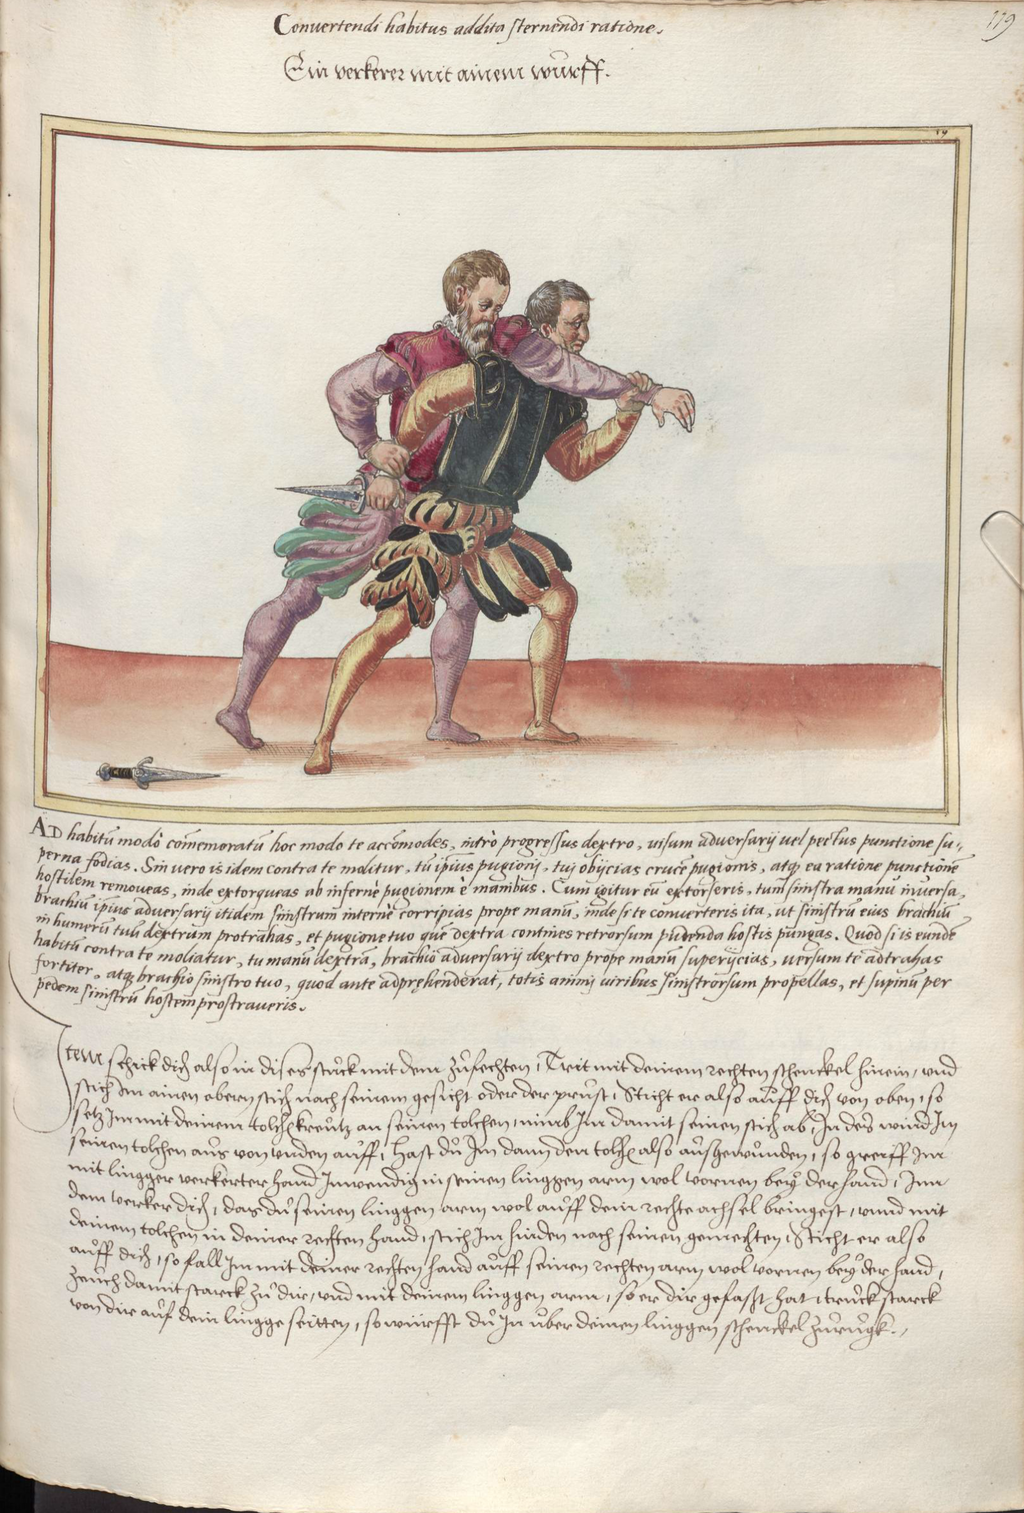 179
Convertendi habitus addita sternendi ratione.
Ein verkerer mit ainem wurff.
19
AD habitū modò com̄emoratū hoc modo te accōmodes, intrò progressus dextro, visum adversarij vel pectus punctione su-
perna fodias. Sin vero is idem contra te molitur, tu ipsius pugionij, tuj obijcias crucē pugionis, atq̨ ea ratione punctionē
hostilem removeas, inde extorqueas ab infernè pugionem è manibus. Cum igitur eū extorseris, tum sinistra manu inversa,
brachiū ipsius adversarij itidem sinistrum internè corripias prope manū, inde si te converteris ita, ut sinistrū eius brachiū
in humerū tuū dextrum protrahas, et pugione tuo quē dextra contines retrorsum pudenda hostis pungas. Quòd si is eundē
habitū contra te moliatur, tu manū dextrā, brachio adversarij dextro prope manū superijcias, versum te adtrahas
fortiter, atq̨ brachio sinistro tuo, quod ante adprehenderat, totis animj viribus sinistrorsum propellas, et supinū per
pedem sinistrū hostem prostraveris.
Item schick dich also in dises stuck mit dem zufechten, Trit mit deinem rechten schenckel hinein, und
stich Im ainen obern stich nach seinem gesicht oder der prust, Sticht er also auff dich von oben, so
setz Im mit deinem tolchē kreutz an seinen tolchen, nimb Im damit seinen stich ab, In des wind Im
seinen tolchen aus von unden auff, Hast du Im dann den tolchē also ausgewunden, so greiff Im
mit lingger verkerter hand Inwendig in seinen linggen arm wol vornen bey der hand, Inn
dem verker dich, das du seinen linggen arm wol auff dein rechte achsel bringest, unnd mit
deinem tolchen in deiner rechten hand, stich Im hinden nach seinen gemechten, Sticht er also
auff dich, so fall Im mit deiner rechten hand auff seinen rechten arm wol vornen bey der hand,
zeuch damit starck zu dir, und mit deinem linggen arm, so er dir gefaszt hat, truck starck
von dir auf dein lingge seitten, so wurfft du In uber deinen linggen schenckel zurugk.